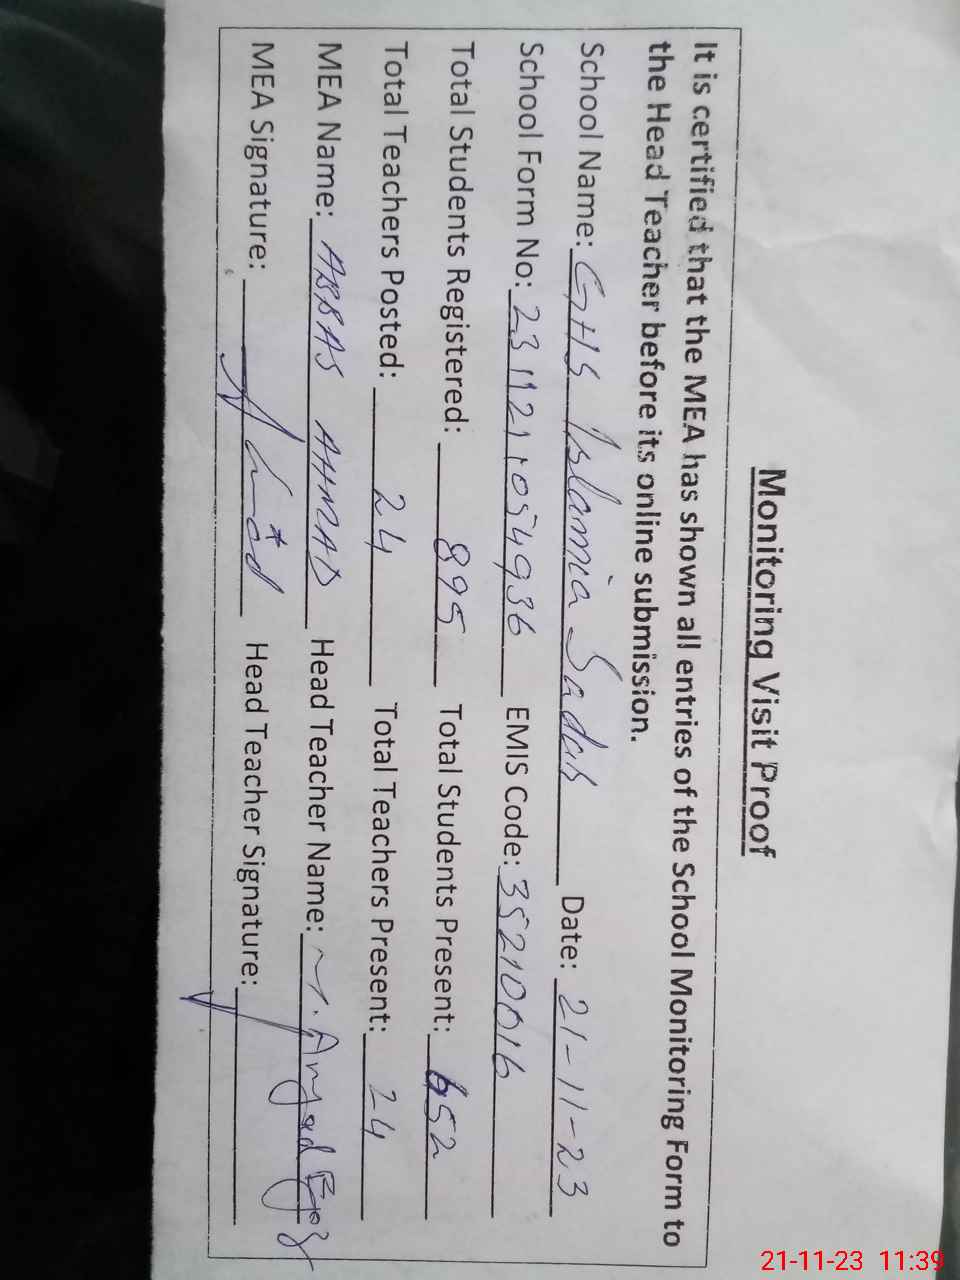 Monitoring Visit Proof
It is certified that the MEA has shown all entries of the School Monitoring Form to
the Head Teacher before its online submission.
School Name: GHS Islamia Sadah Date: 21-11-23
School Form No: 2311211054936 EMIS Code: 35210016
Total Students Registered: 895 Total Students Present: 652
Total Teachers Posted: 24 Total Teachers Present: 24
MEA Name: ABBAS AHMAD Head Teacher Name: M. Amjad
MEA Signature: Head Teacher Signature:
21-11-23 11:39